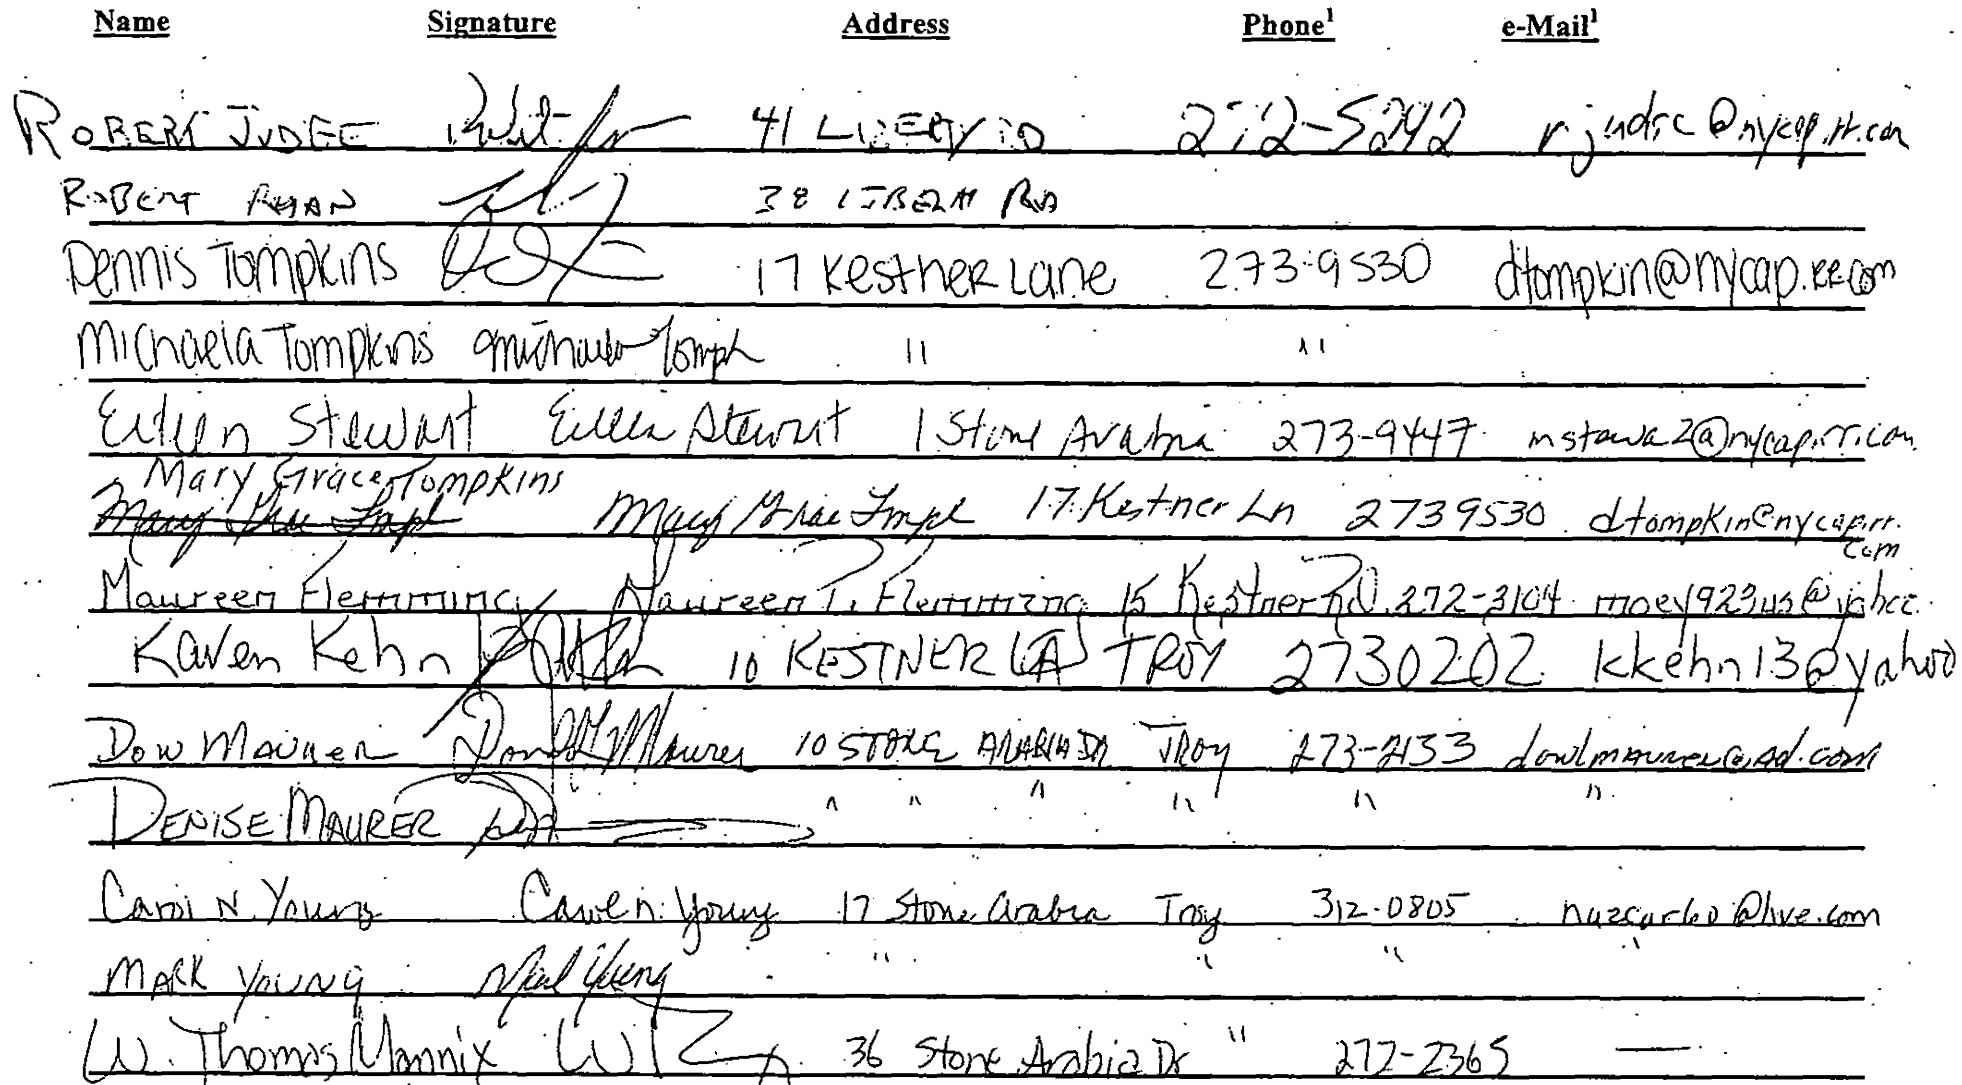 Name Signature Address Phone¹ e-Mail¹
ROBERT JUDGE 41 LIBERTY RD 272-5242 @nycap.rr.com
ROBERT RYAN 38 LIBERTY RD
Dennis Tompkins 17 Kestner Lane 273-9530 dtompkin@nycap.RR.com
Michaela Tompkins Michaela Tomph " "
Eileen Stewart Eileen Stewart 1 Stone Arabia 273-9447 @nycap.rr.com
Mary Grace Tompkins
Mary Grace Tmpk Mary Grace Tmpk 17 Kestner Ln 2739530 dtompkin@nycap.rr.
com
Maureen Flemming Maureen T. Flemming 15 Kestner 272-3104 moey923us@yahoo
Karen Kehn 10 KESTNER LA TROY 2730202 kkehn13@yahoo
Dow MAURER Maurer 10 STONE ARABIA DR TROY 273-2133
DENISE MAURER " " " " " "
Carol N. Young Carol n. Young 17 Stone Arabia Troy 312-0805 @live.com
MARK YOUNG Mark Young " " "
W. Thomas Mannix 36 Stone Arabia Dr " 272-2365 —